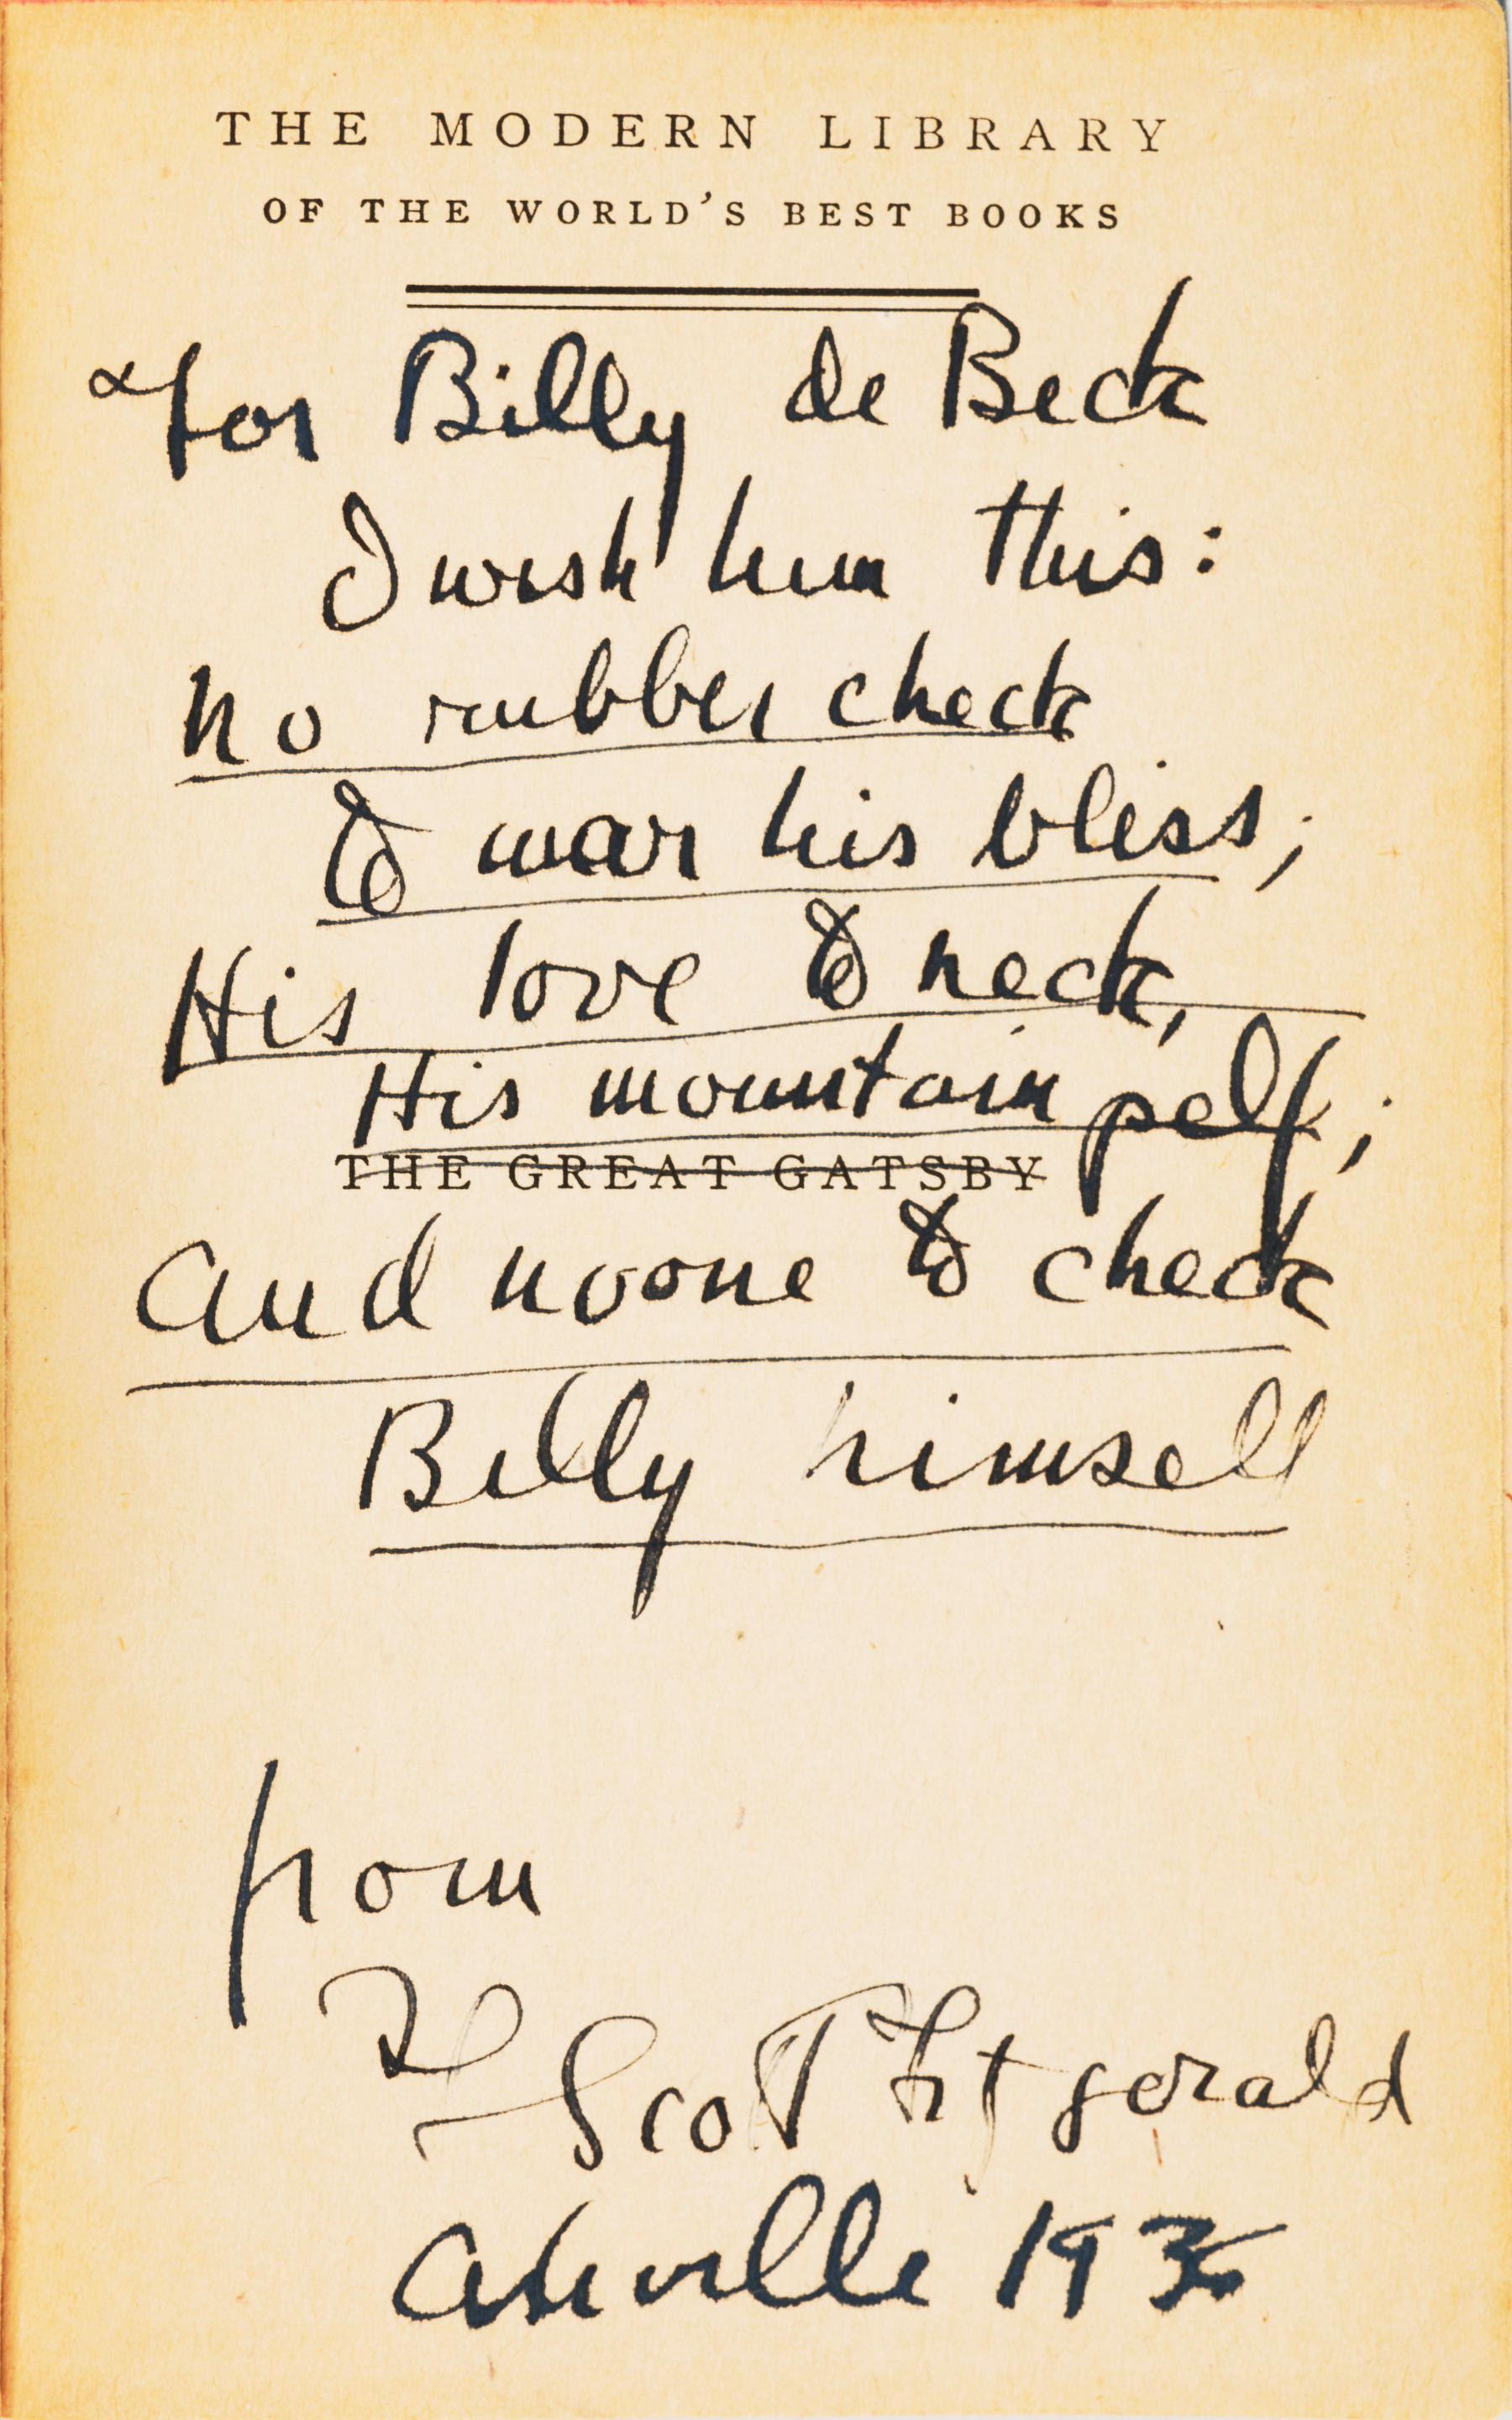 THE MODERN LIBRARY
OF THE WORLD'S BEST BOOKS
For Billy de Beck
I wish him this:
No rubber check
To mar his bliss;
His love to neck,
His mountain pelf;
THE GREAT GATSBY
And noone to check
Billy himself
from
F Scott Fitzgerald
Ashville 1935